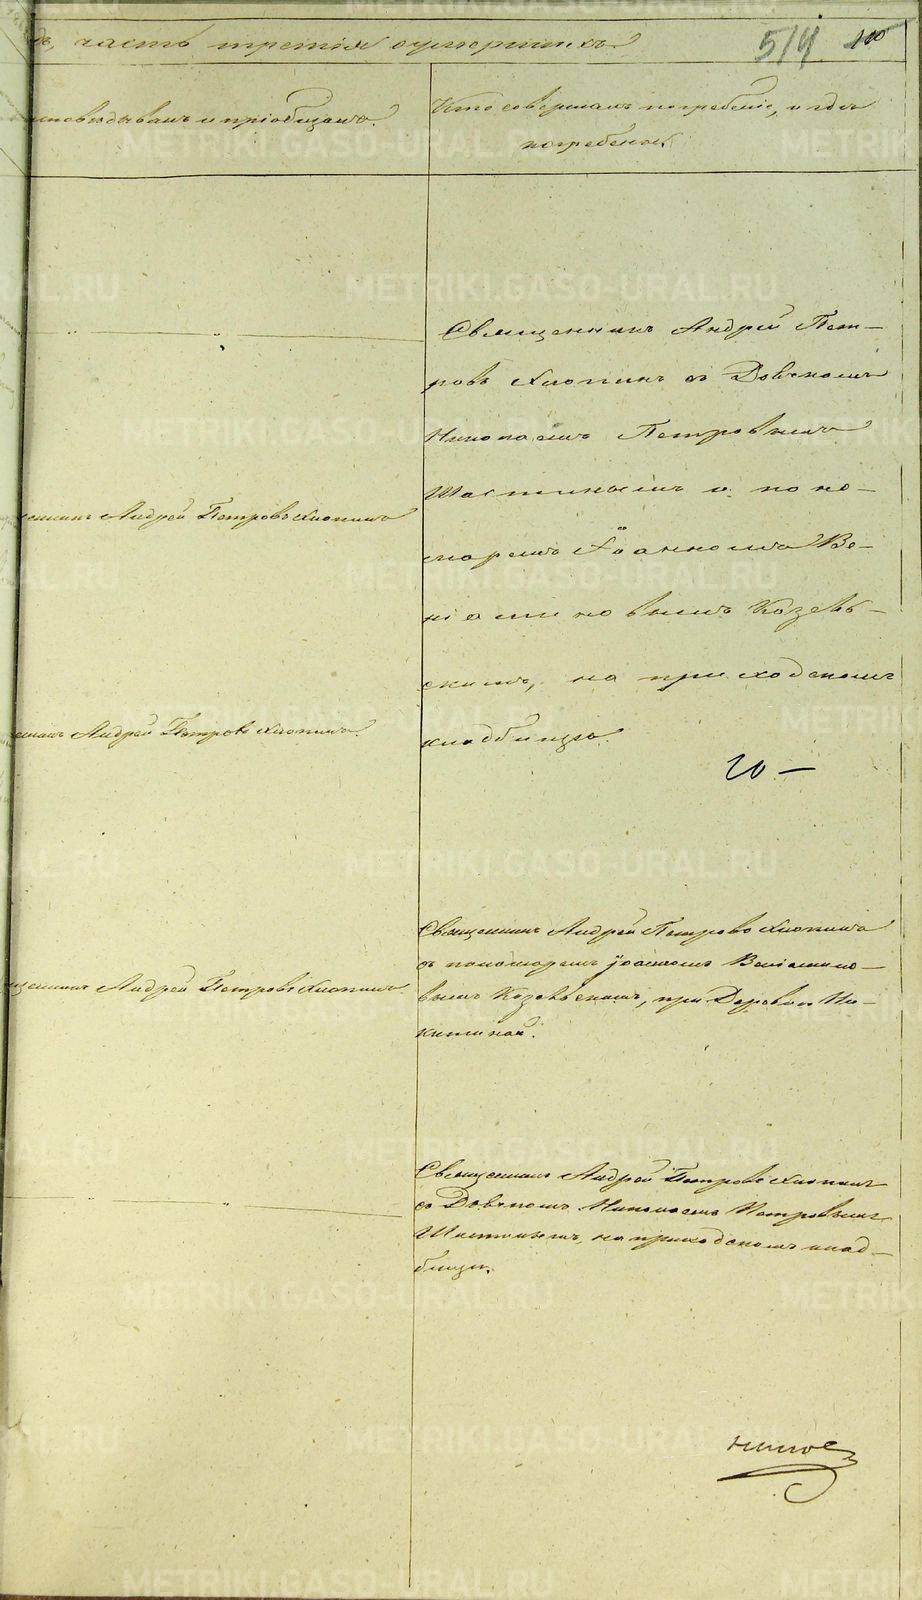 часть третія о умершихъ
514
исповѣдывалъ и пріобщалъ.
Кто совершалъ погребеніе, и гдѣ
погребены.
Священникъ Андрей Пет-
ровъ Хлопинъ съ Дьячкомъ
Николаемъ Петровымъ
Шастинымъ и поно-
маремъ Іоанномъ Ве-
ніаминовымъ Козель-
скимъ, на приходскомъ
кладбищѣ.
20 —
щенникъ Андрей Петровъ Хлопинъ
щенникъ Андрей Петровъ Хлопинъ.
Священникъ Андрей Петровъ Хлопинъ
съ пономаремъ Іоанномъ Веніамино-
вымъ Козельскимъ, при Деревнѣ Ни-
китиной.
щенникъ Андрей Петровъ Хлопинъ.
Священникъ Андрей Петровъ Хлопинъ
съ Дьячкомъ Николаемъ Петровымъ
Шастинымъ, на приходскомъ клад-
бищѣ.
METRIKI.GASO-URAL.RU